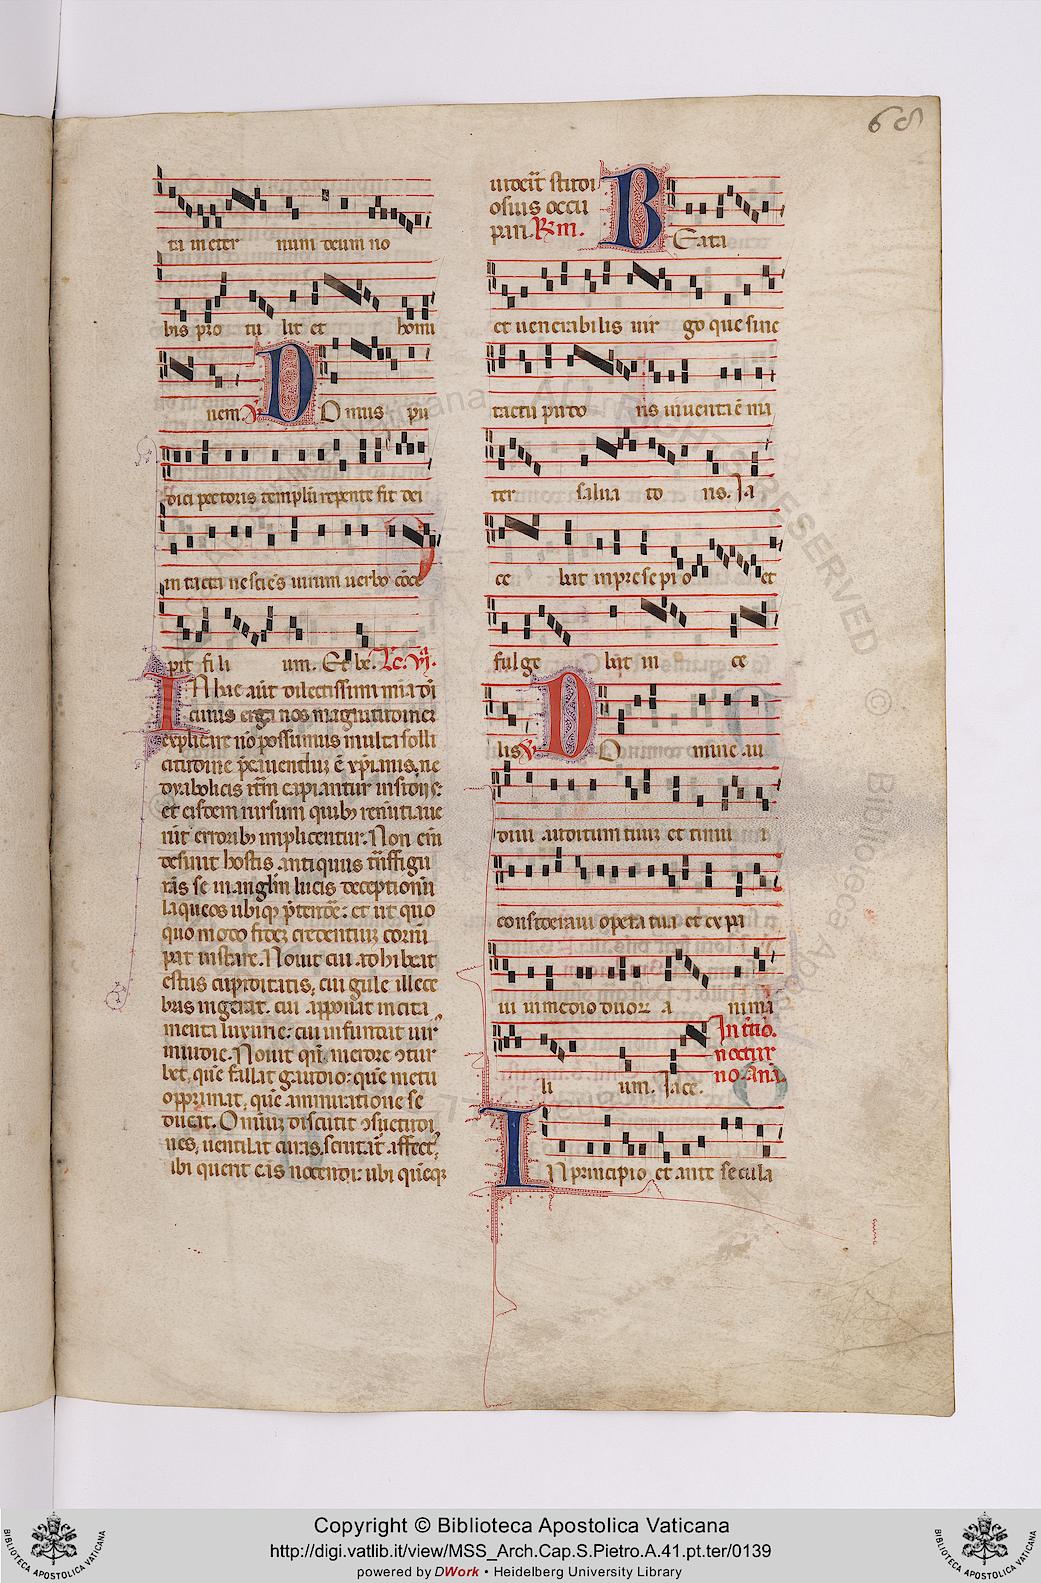 68
ta mater num deum no
bis pro tu lit et homi
nem. ℣ Domus pu
dici pectoris templū repente fit dei
intacta nesciēs uirum uerbo cōce
pit fili um. Et be. Lc. VI.
In hac aūt dilectissimi mīa dī
cuius erga nos magnitudinez
explicare nō possumus multa solli
citudine p̄cauenduz ē xp̄ianis, ne
dyabolicis itēm capiantur insidijs:
et eisdem rursum quibꝫ renūtiaue
rūt erroribꝫ implicentur. Non em̄
desinit hostis antiquus trāsfigu
rās se in angl̄m lucis deceptionū
laqueos ubiqꝫ p̄tendē: et ut quo
quo modo fidez credentiuz corrū
pat instare. Nouit cui adhibeat
estus cupiditatis, cui gule illece
bras ingerat. cui apponat incita
menta luxurie: cui infundat uir
inuidie. Nouit quē merore ɔtur
bet, quē fallat gaudio: quē metu
opprimat, quē ammiratione se
ducat. Omniuz discutit ɔsuetudi
nes, uentilat curas, scrutat̄ affect⁹,
ibi querit cās nocendi: ubi quēcqꝫ
uiderit studi
osius occu
pari. Rm. Beata
et uenerabilis uir go que sine
tactu pudo ris inuenta ē ma
ter salua to ris. Ja
ce bat in presepi o et
fulge bat in ce
lis ℣ Domine au
diui auditum tuuz et timui
consideraui opera tua et expa
ui in medio duorꝝ a nima
li um. Jace. In tr̄io.
noctur
no. Anā.
In principio et ante secula
Copyright © Biblioteca Apostolica Vaticana
http://digi.vatlib.it/view/MSS_Arch.Cap.S.Pietro.A.41.pt.ter/0139
powered by DWork • Heidelberg University Library